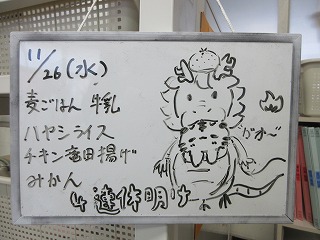 11/26(水)
麦ごはん 牛乳
ハヤシライス
チキン竜田揚げ
みかん
4連休明け